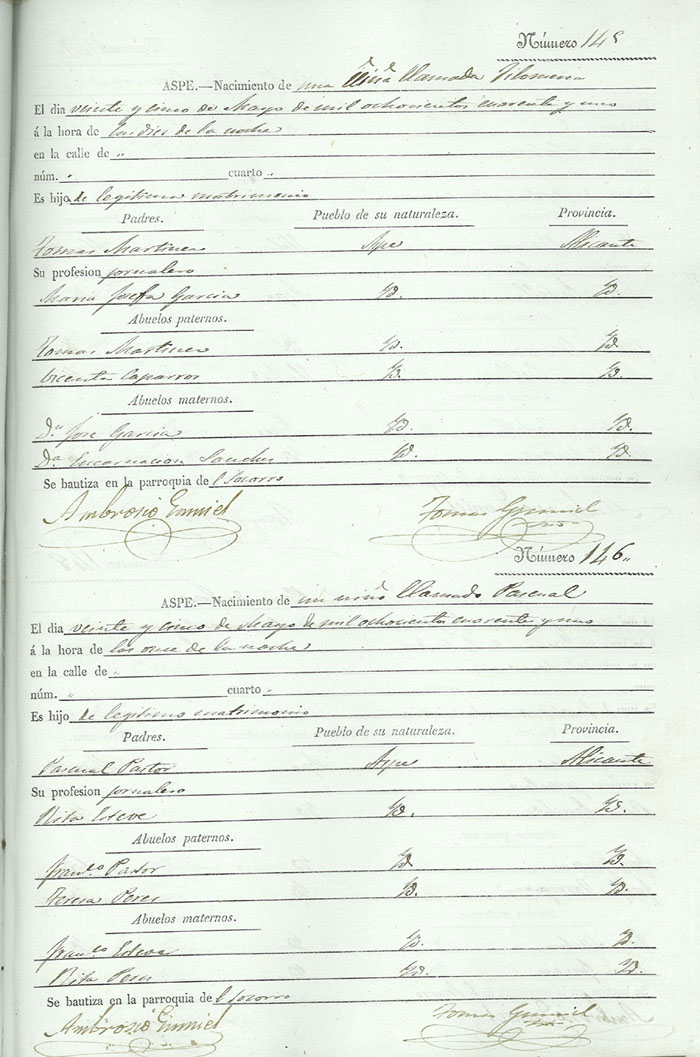 Número 145
ASPE.—Nacimiento de una niña llamada Filomena
El dia veinte y cinco de Mayo de mil ochocientos cuarenta y uno
á la hora de las dies de la noche
en la calle de "
núm. " cuarto "
Es hijo de legitimo matrimonio
Padres. Pueblo de su naturaleza. Provincia.
Tomas Martinez Aspe Alicante
Su profesion jornalero
Maria Josefa Garcia Yd. Yd.
Abuelos paternos.
Tomas Martinez Yd. Yd.
Vicenta Caparros Yd. Yd.
Abuelos maternos.
Dn. Jose Garcia Yd. Yd.
Da. Encarnacion Sanchez Yd. Yd.
Se bautiza en la parroquia de l Socorro
Ambrosio Tomas
Número 146"
ASPE.—Nacimiento de un niño llamado Pascual
El dia veinte y cinco de Mayo de mil ochocientos cuarenta y uno
á la hora de las once de la noche
en la calle de "
núm. " cuarto "
Es hijo de legitimo matrimonio
Padres. Pueblo de su naturaleza. Provincia.
Pascual Pastor Aspe Alicante
Su profesion jornalero
Rita Esteve Yd. Yd.
Abuelos paternos.
Franco. Pastor Yd. Yd.
Teresa Peres Yd. Yd.
Abuelos maternos.
Franco. Esteve Yd. Yd.
Rita Peres Yd. Yd.
Se bautiza en la parroquia de l Socorro
Ambrosio Tomas